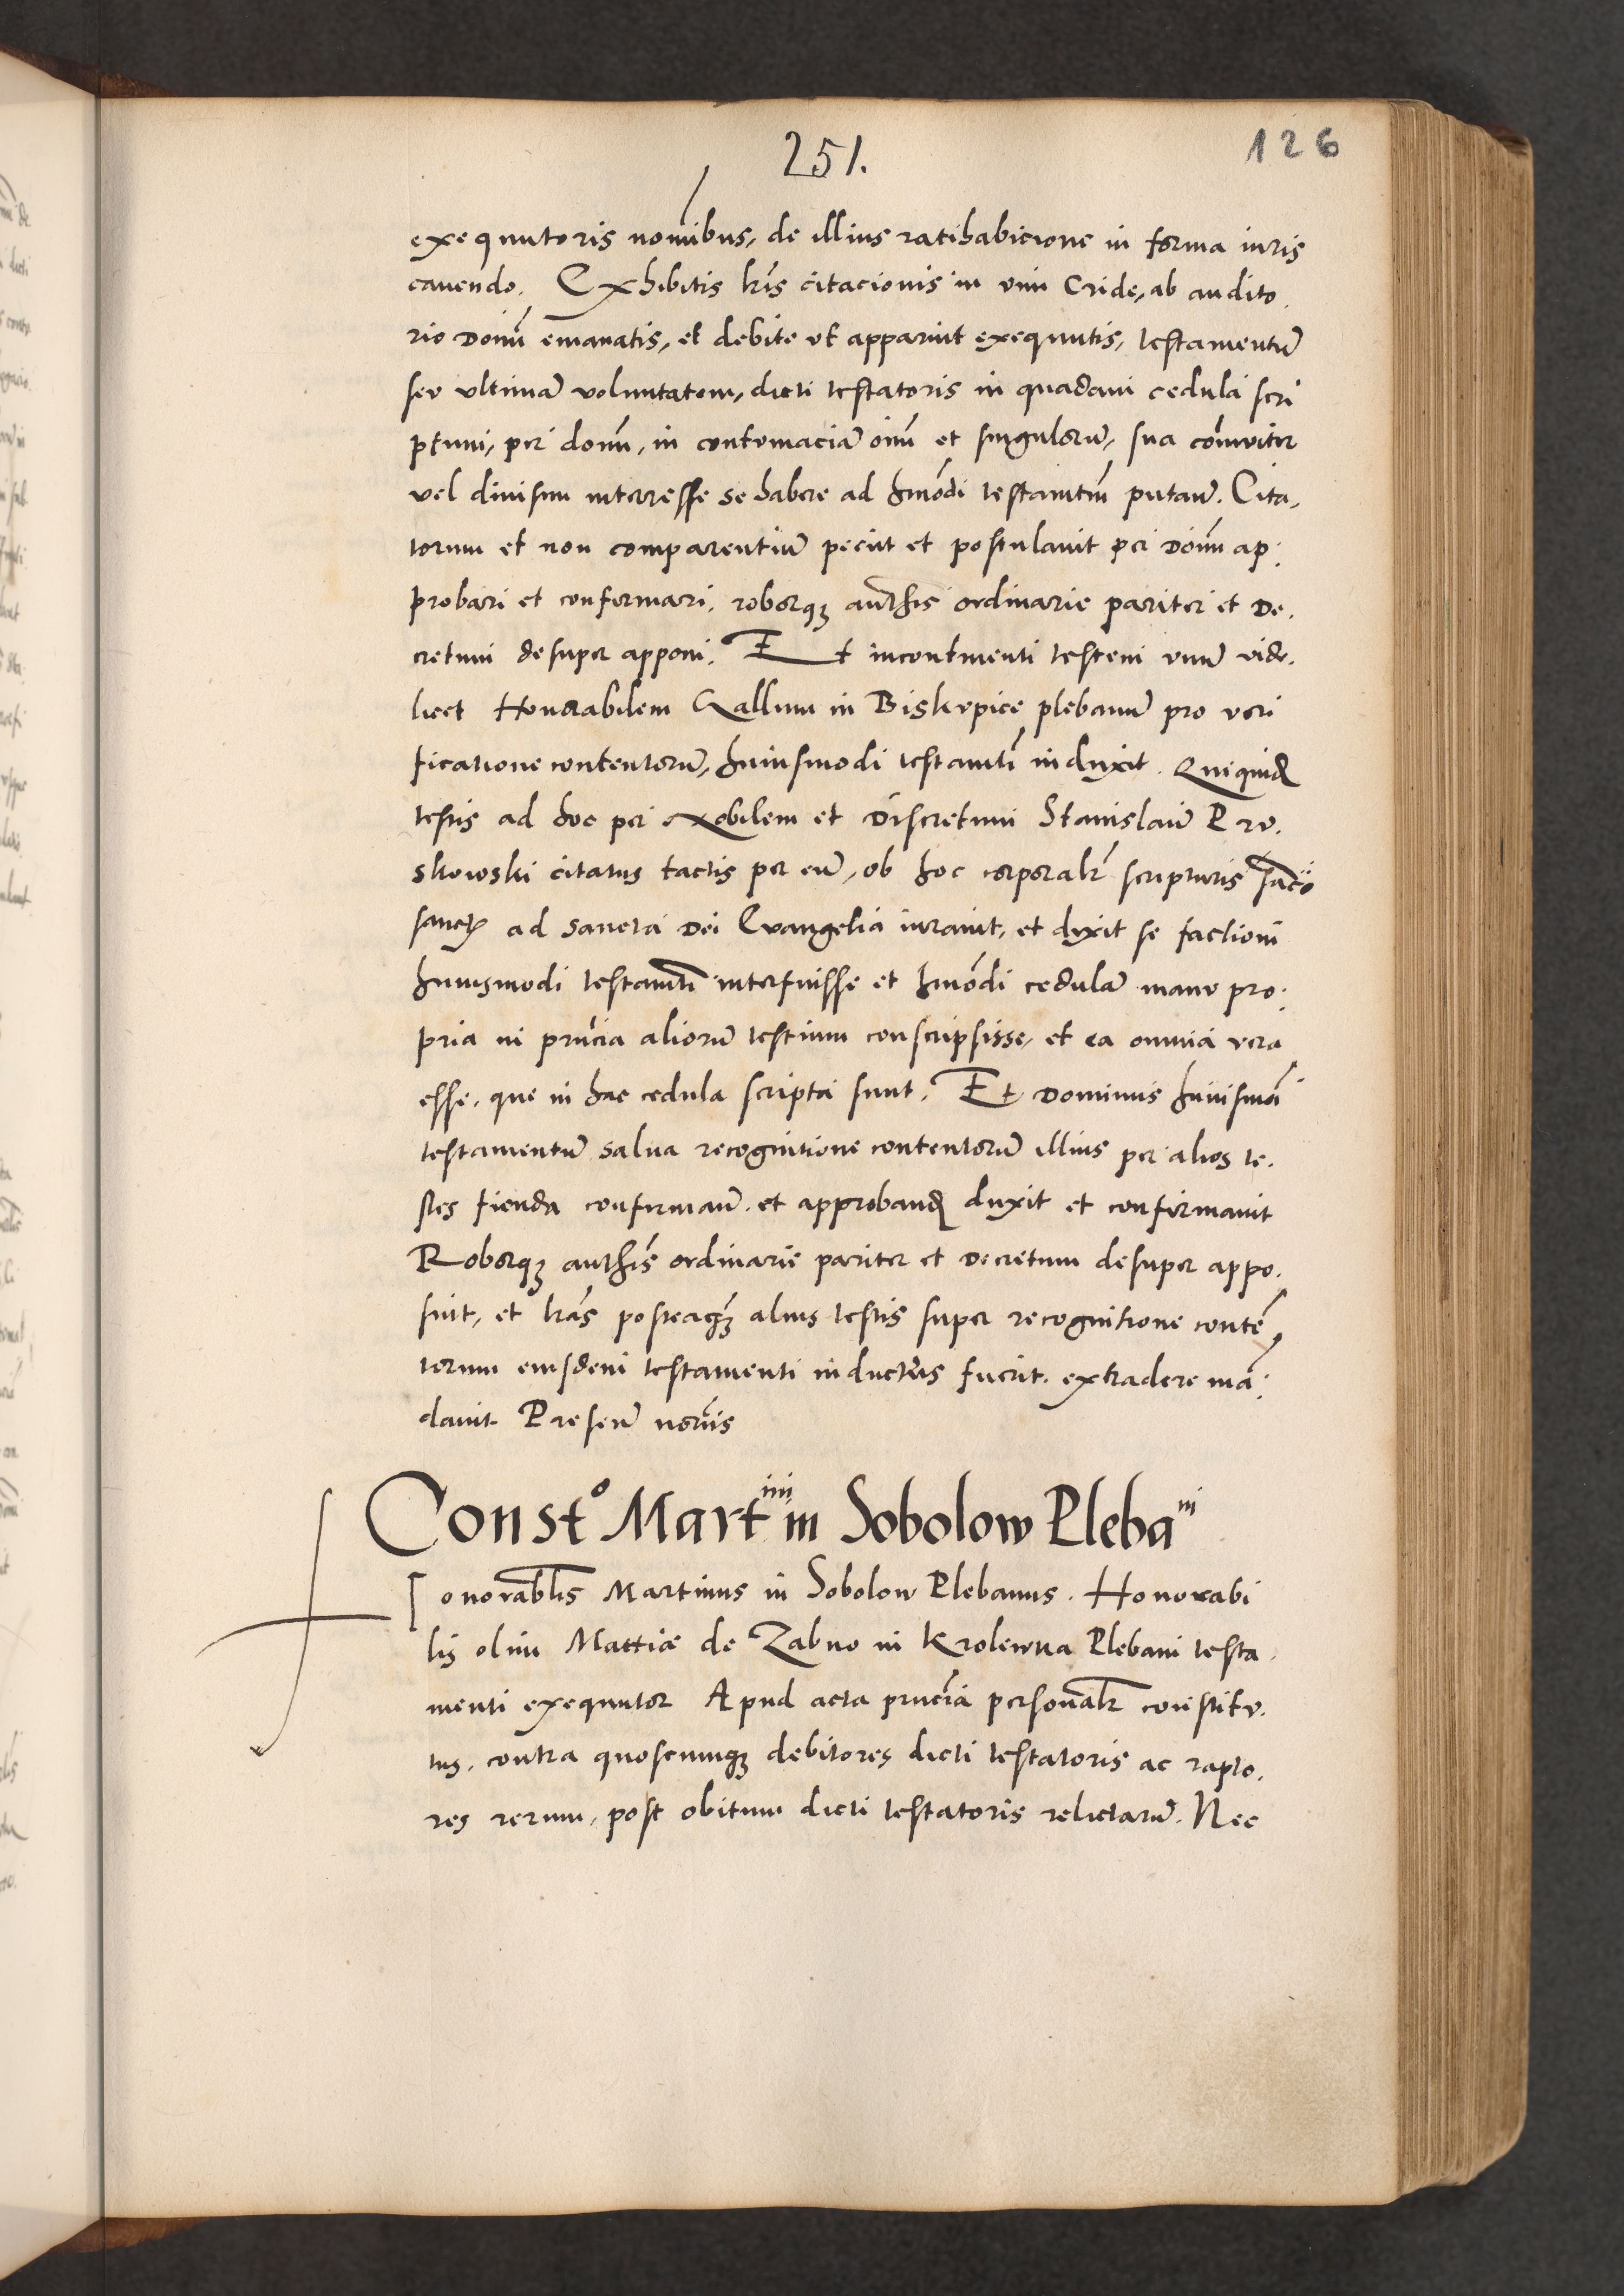 251.
126
exequutoris nomibus, de illius ratihabicione in forma iuris
cauendo. Exhibitis lris citacionis in vim Cride, ab audito
rio domi emanatis, et debite vt apparuit exequutis, testamentũ
seu ultimã voluntatem, dicti testatoris in quadam cedula scri
ptum, per domi, in contumaciã oim et singulorũ, sua comuiter
vel diuisim interesse se habere ad hmodi testamtm putanũ. Cita,
torum et non comparentiũ peciit et postulauit per domi ap,
probari et confirmari, roborqȝ authis ordinarie pariter et de,
cretum desuper apponi. Et incontinenti testem vnũ vide,
licet Honorabilem Gallum in Biskupice plebanũ pro veri
ficatione contentorũ, huiusmodi testamti induxit. Quiquid
testis ad hoc per Nobilem et Discretum Stanislaũ Pru,
skowski citatus tactis per eũ, ob hoc corporalr scripturis sacro
sanctis ad sancta Dei Evangelia iurauit, et dixit se factioni
huiusmodi testamti interfuisse et hmodi cedulã manu pro,
pria in pñcia aliorũ testium conscripsisse, et ea omnia vera
esse, que in hac cedula scripta sunt. Et Dominus huiusmõi
testamentũ salua recognitione contentorũ illius per alios te,
stes fienda confirmanũ et approband duxit et confirmauit
Roborqȝ authis ordinarie pariter et Decretum desuper appo,
suit, et lras posteaqȝ alius testis super recognitione contẽ
torum eiusdem testamenti inductus fuerit, extradere mã,
dauit Presenũ notriis
Constº Martini in Sobolow Plebani
onorablis Martinus in Sobolow Plebanus. Honorabi
lis olim Mattiæ de Zabno in Krolewna Plebani testa,
menti exequutor Apud acta pñcia personalr constitu,
tus, contra quoscumqȝ debitores dicti testatoris ac rapto,
res rerum, post obitum dicti testatoris relictarũ. Nec